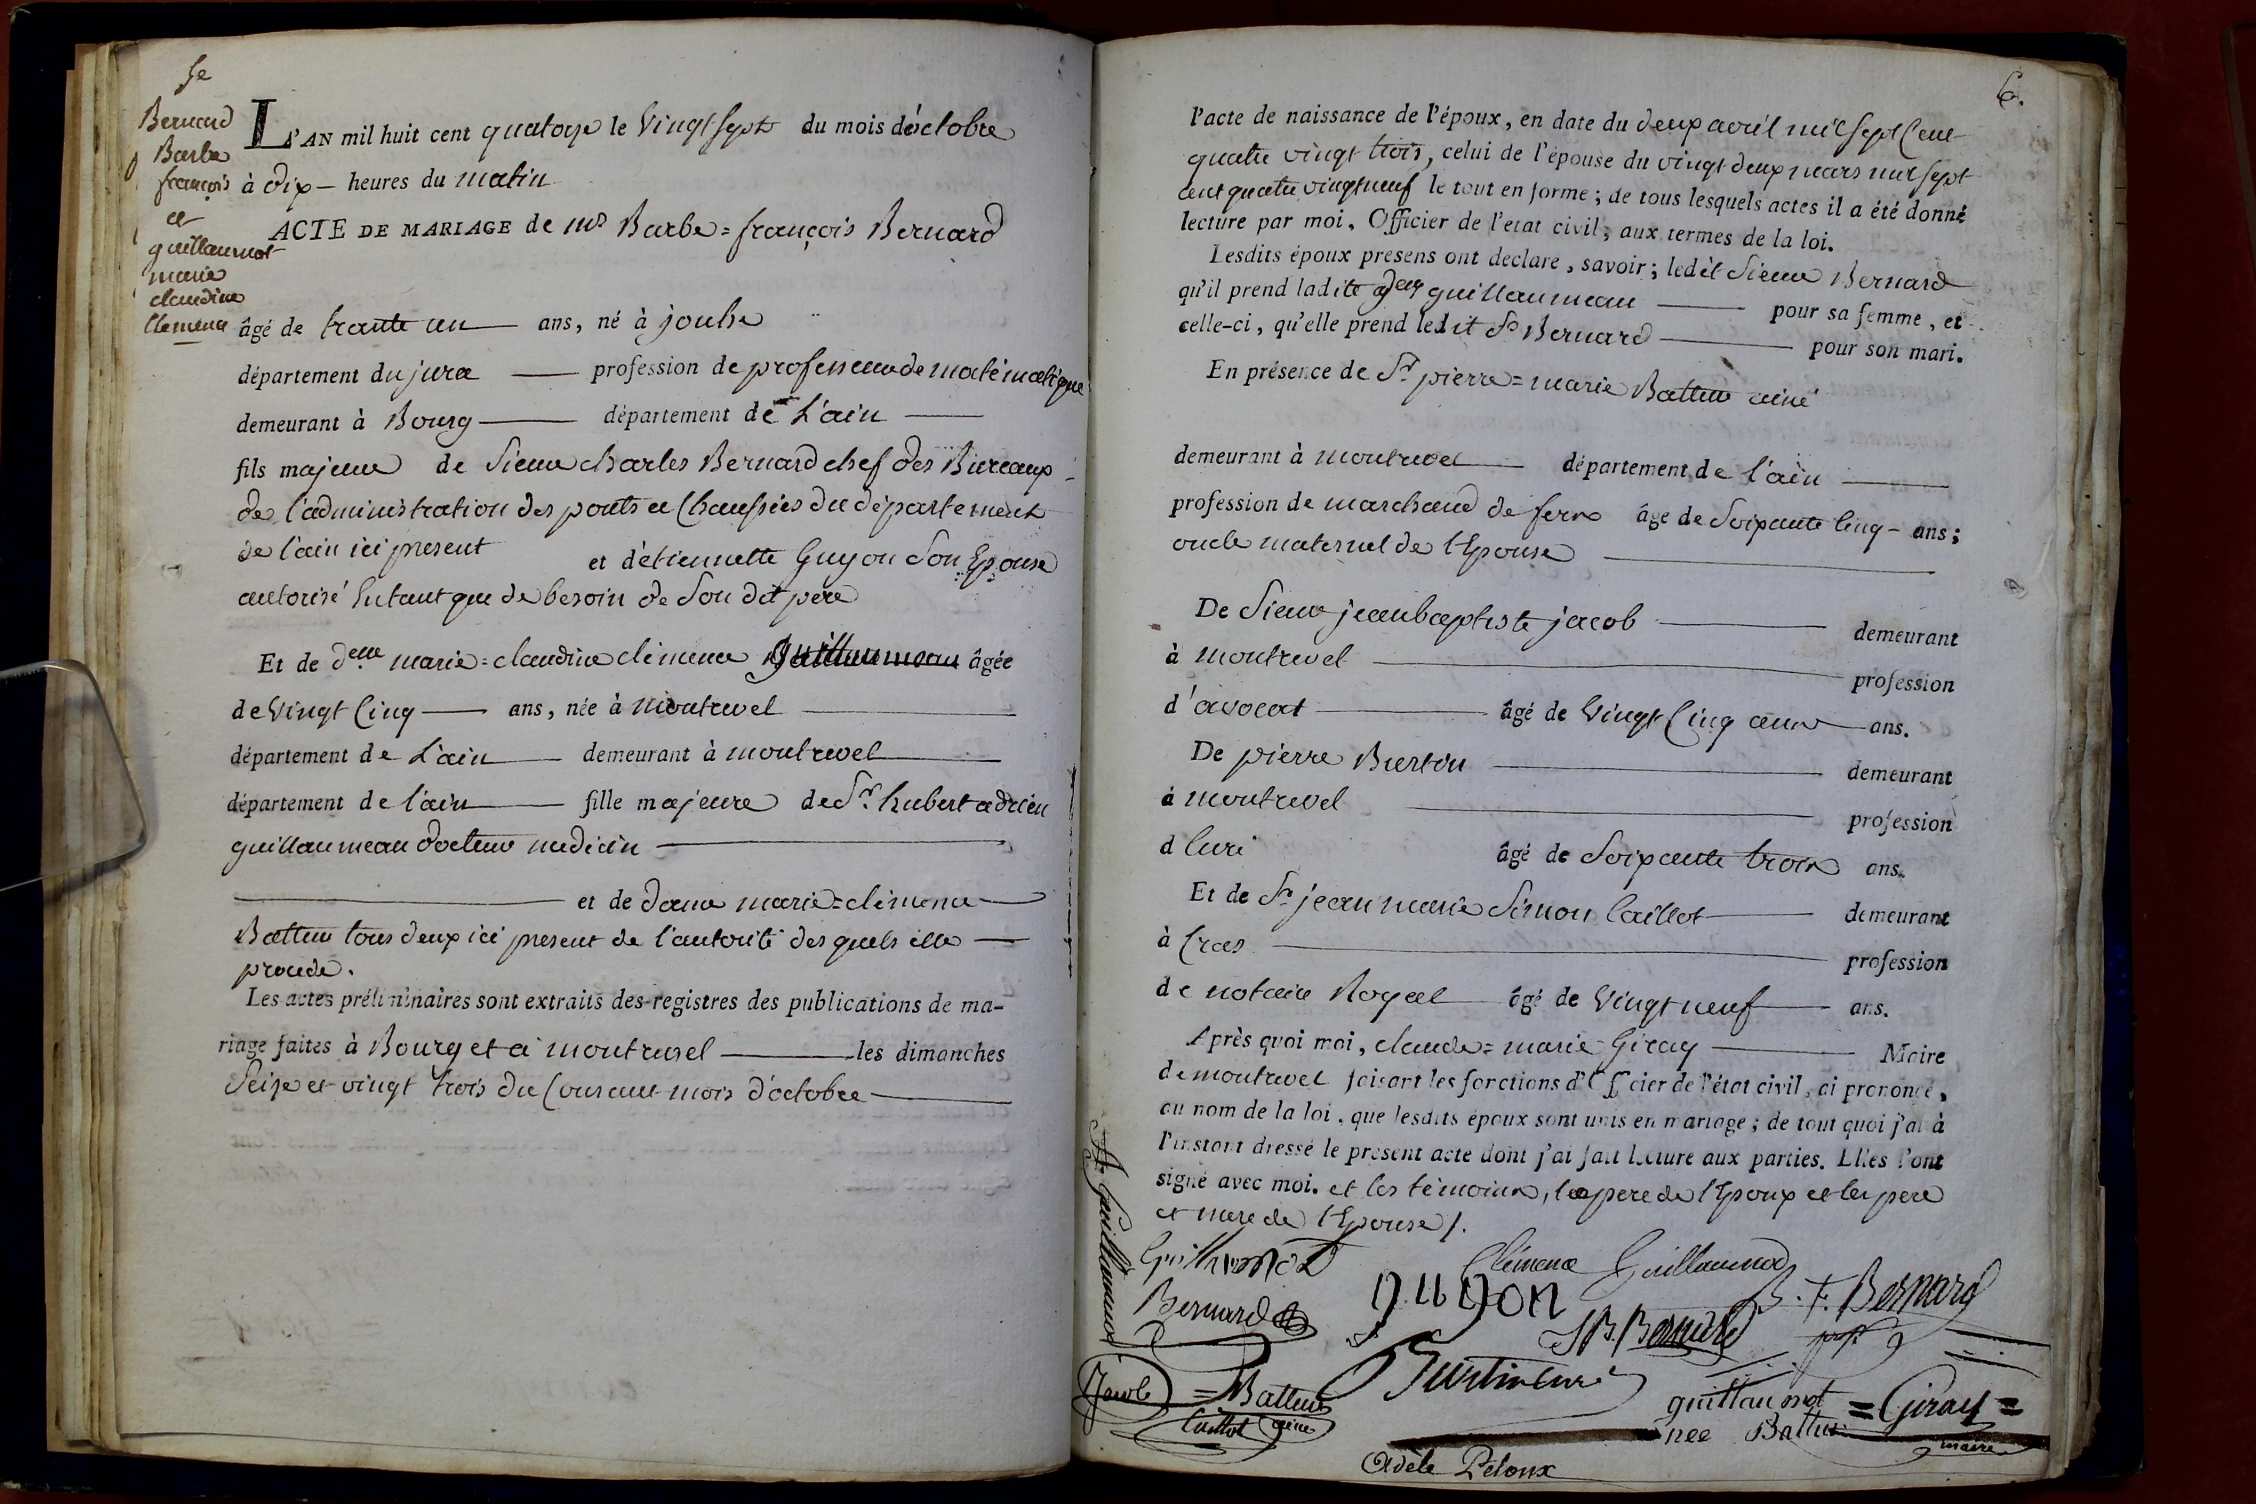 5e
Bernard
Barbe
françois
et
guillaumot
marie
claudine
Clemence
L'AN mil huit cent quatorze le Vingt Sept du mois d'octobre
à dix — heures du matin
ACTE DE MARIAGE de mr Barbe = françois Bernard
âgé de trante un — ans, né à jouhe
département du jura — profession de professeur de matématique
demeurant à Bourg — département de L'ain —
fils majeur de Sieur charles Bernard chef des Bureaux
de l'administration des ponts et Chaussées du département
de l'ain ici présent et d'étiennette Guyon Son Epouse
autorisé Entant que de besoin de Son dit père
Et de delle marie = claudine clémence guillaumeau âgée
de Vingt Cinq — ans, née à montrevel —
département de L'ain — demeurant à montrevel —
département de l'ain — fille majeure de Sr. hubert adrien
guillaumeau docteur medicin —
— et de dame marie = clémence —
Battur tous deux ici present de l'autorité des quels elle —
procede.
Les actes préliminaires sont extraits des registres des publications de ma-
riage faites à Bourg et à montrevel — les dimanches
Seize et vingt trois du Courant mois d'octobre —
6.
l'acte de naissance de l'époux, en date du deux avril mil Sept Cent
quatre vingt trois, celui de l'épouse du vingt deux mars mil sept
cent quatre vingt neuf le tout en forme; de tous lesquels actes il a été donné
lecture par moi, Officier de l'etat civil, aux termes de la loi.
Lesdits époux presens ont declare, savoir; ledit Sieur Bernard
qu'il prend ladite delle guillaumeau — pour sa femme, et
celle-ci, qu'elle prend ledit Sr Bernard — pour son mari.
En présence de Sr pierre = marie Battur ainé
demeurant à montrevel — département de l'ain —
profession de marchand de fers âge de Soixante Cinq — ans;
oncle maternel de l'Epouse —
De Sieur jean baptiste jacob — demeurant
à montrevel — profession
d'avocat — âgé de Vingt Cinq ans — ans.
De pierre Burtin — demeurant
à montrevel — profession
d Curé âgé de Soixante trois ans.
Et de Sr jean marie Simon Caillot — demeurant
à Cras — profession
de notaire Royal — âgé de Vingt neuf — ans.
Après quoi moi, claude = marie Giray — Maire
de montrevel faisant les fonctions d'Officier de l'état civil, ai prononcé,
au nom de la loi, que lesdits époux sont unis en mariage; de tout quoi j'ai à
l'instant dressé le présent acte dont j'ai fait lecture aux parties. Elles l'ont
signé avec moi. et les témoins, le pere de l'Epoux et les pere
et mere de l'Epouse /.
A. Guillaumot
Guillaumot Clémence Guillaumot
Bernard guyon JB. Bernard B. F. Bernard
Jacob = Battur ainé Burtin Curé
Caillot guillaumot née Battur = Giray = maire
Adèle Peloux